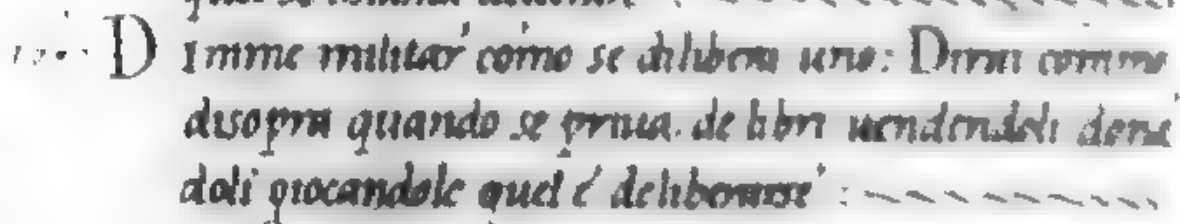 Dimme militar' cómo se dilibera uno: Dimi commo
disopra quando se priua. de libri uendendoli dona
doli giocandole quel é deliberarse' :